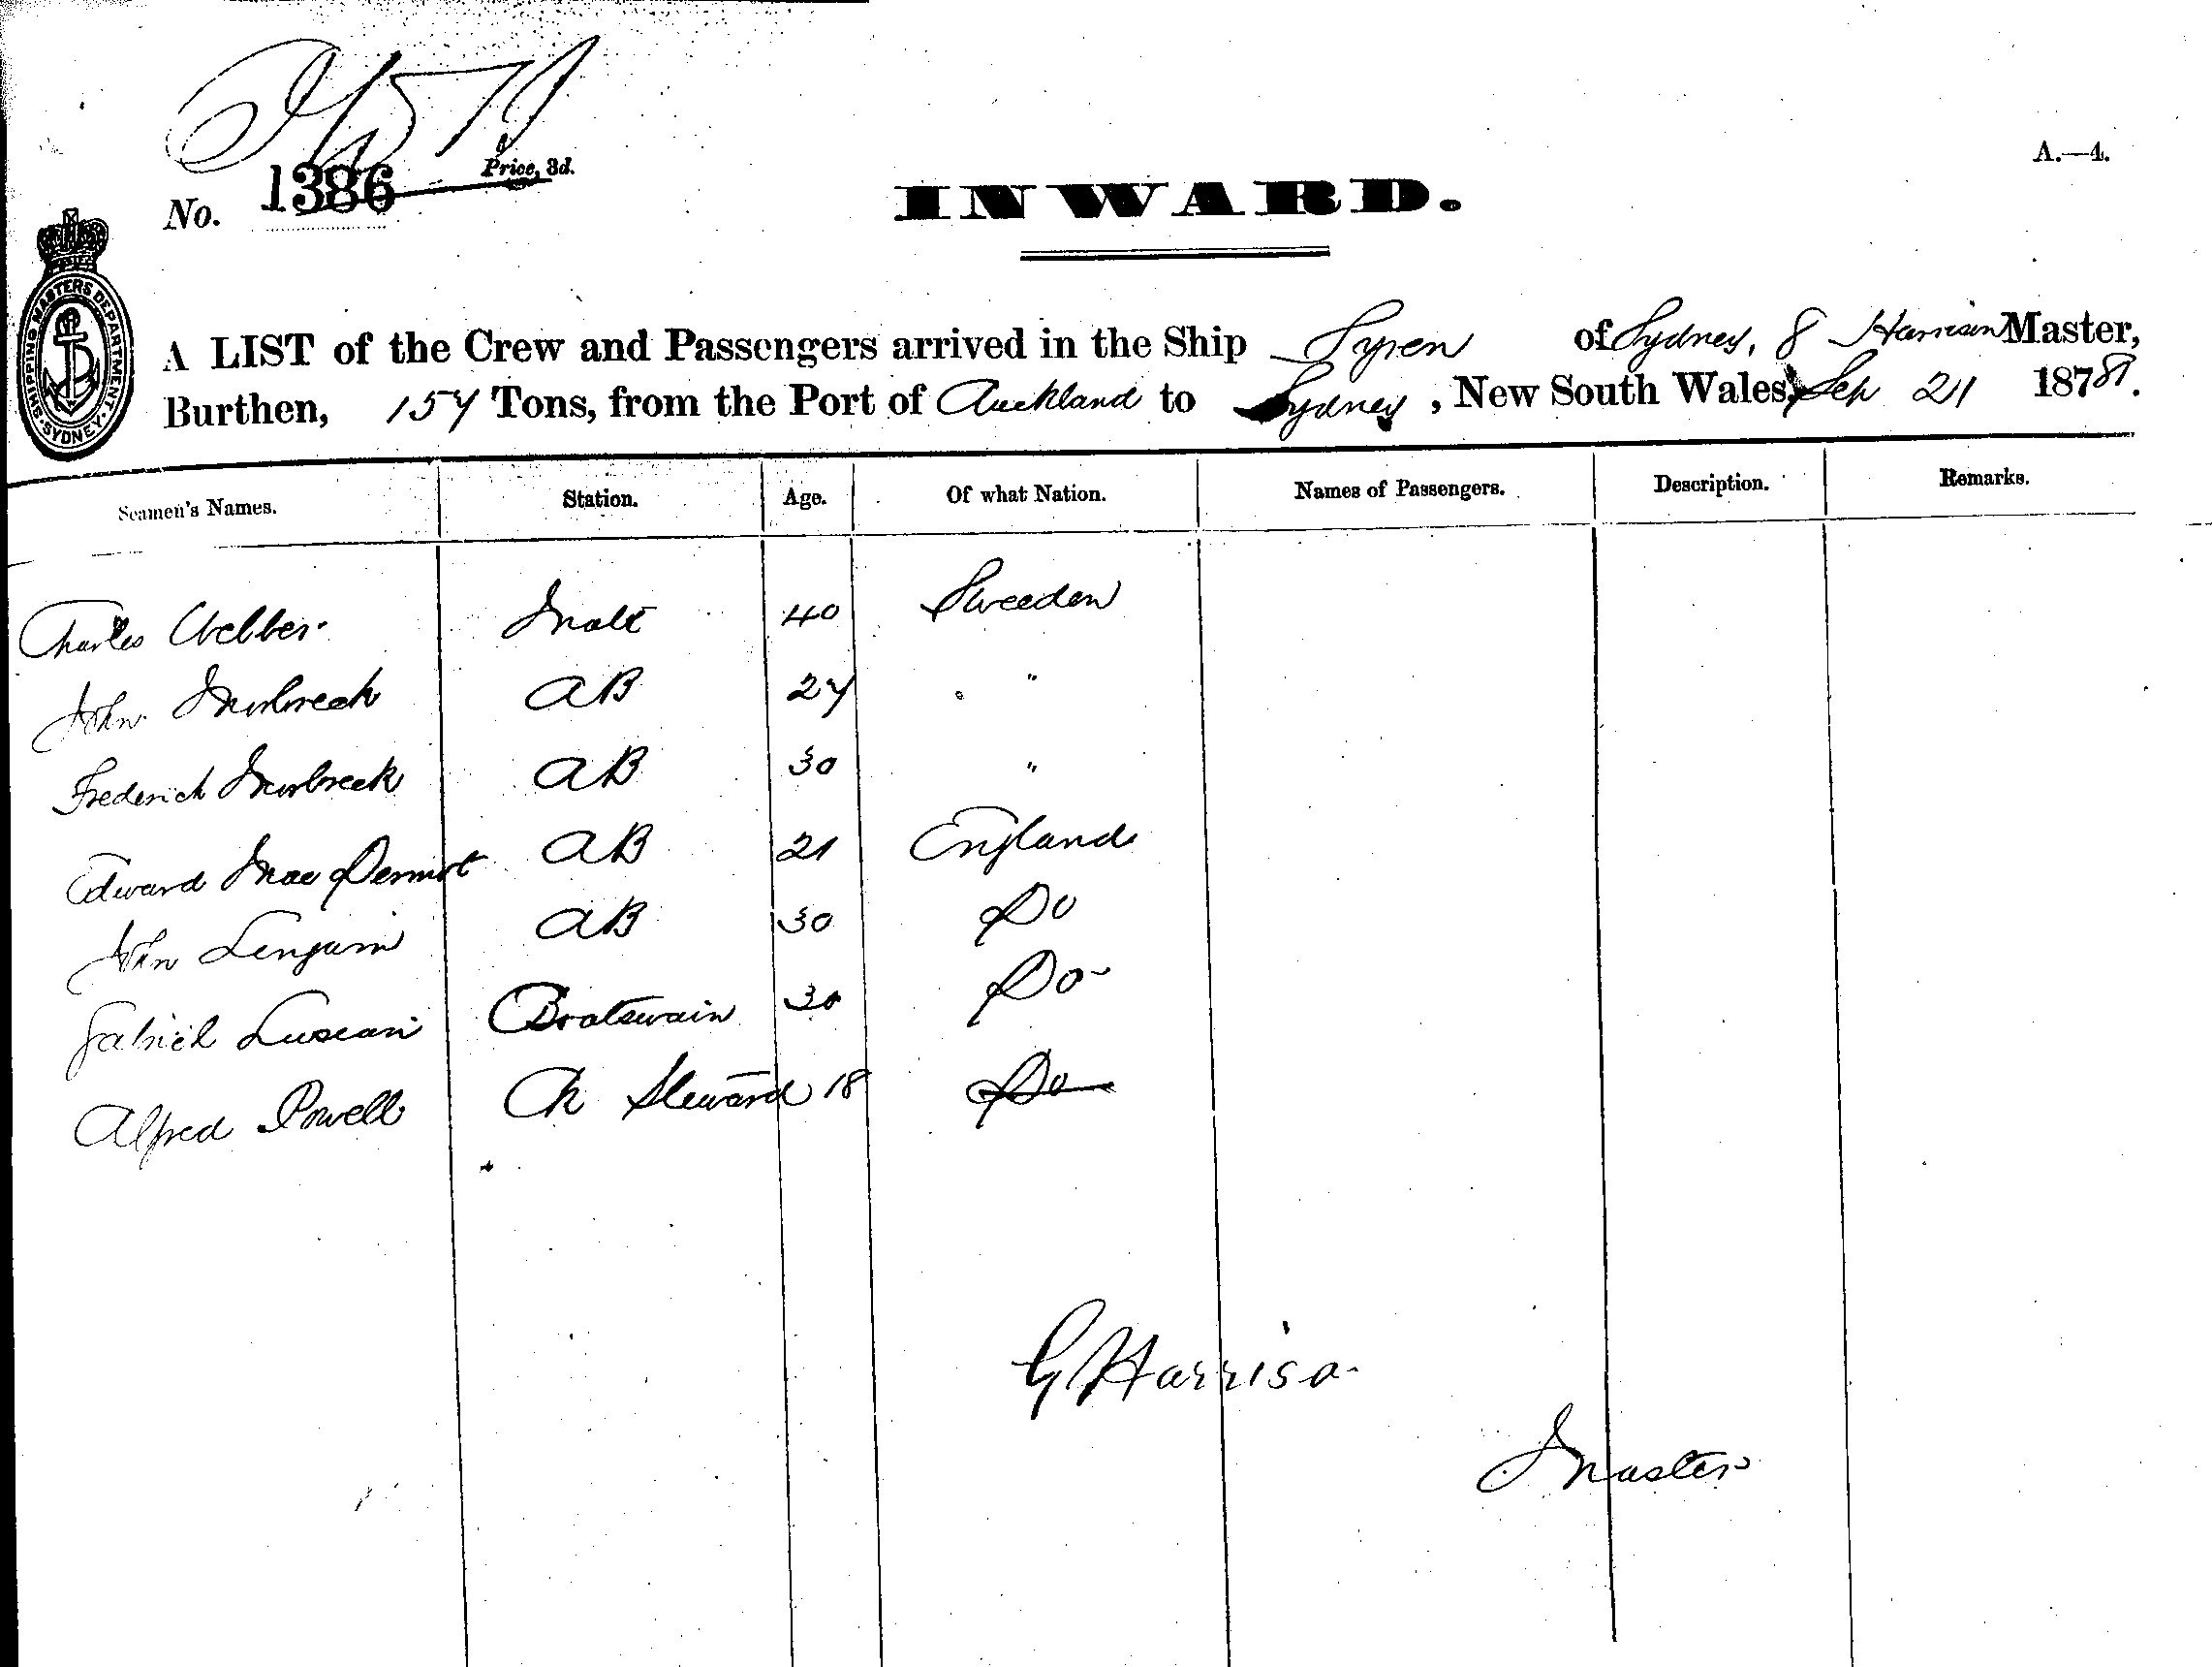 No. 1386 Price, 3d.
A.—4.
INWARD.
SHIPPING MASTERS DEPARTMENT. SYDNEY.
A LIST of the Crew and Passengers arrived in the Ship Syren of Sydney, Harrison Master,
Burthen, 157 Tons, from the Port of Auckland to Sydney, New South Wales, Sep 21 187
Seamen's Names. Station. Age. Of what Nation. Names of Passengers. Description. Remarks.
Charles Webber Mate 40 Sweeden
John AB 27 "
Frederick AB 30 "
Edward Mac Dermot AB 21 England
John AB 30 Do
Gabriel Boatswain 30 Do
Alfred Powell Steward 18 Do
G Harrison
Master